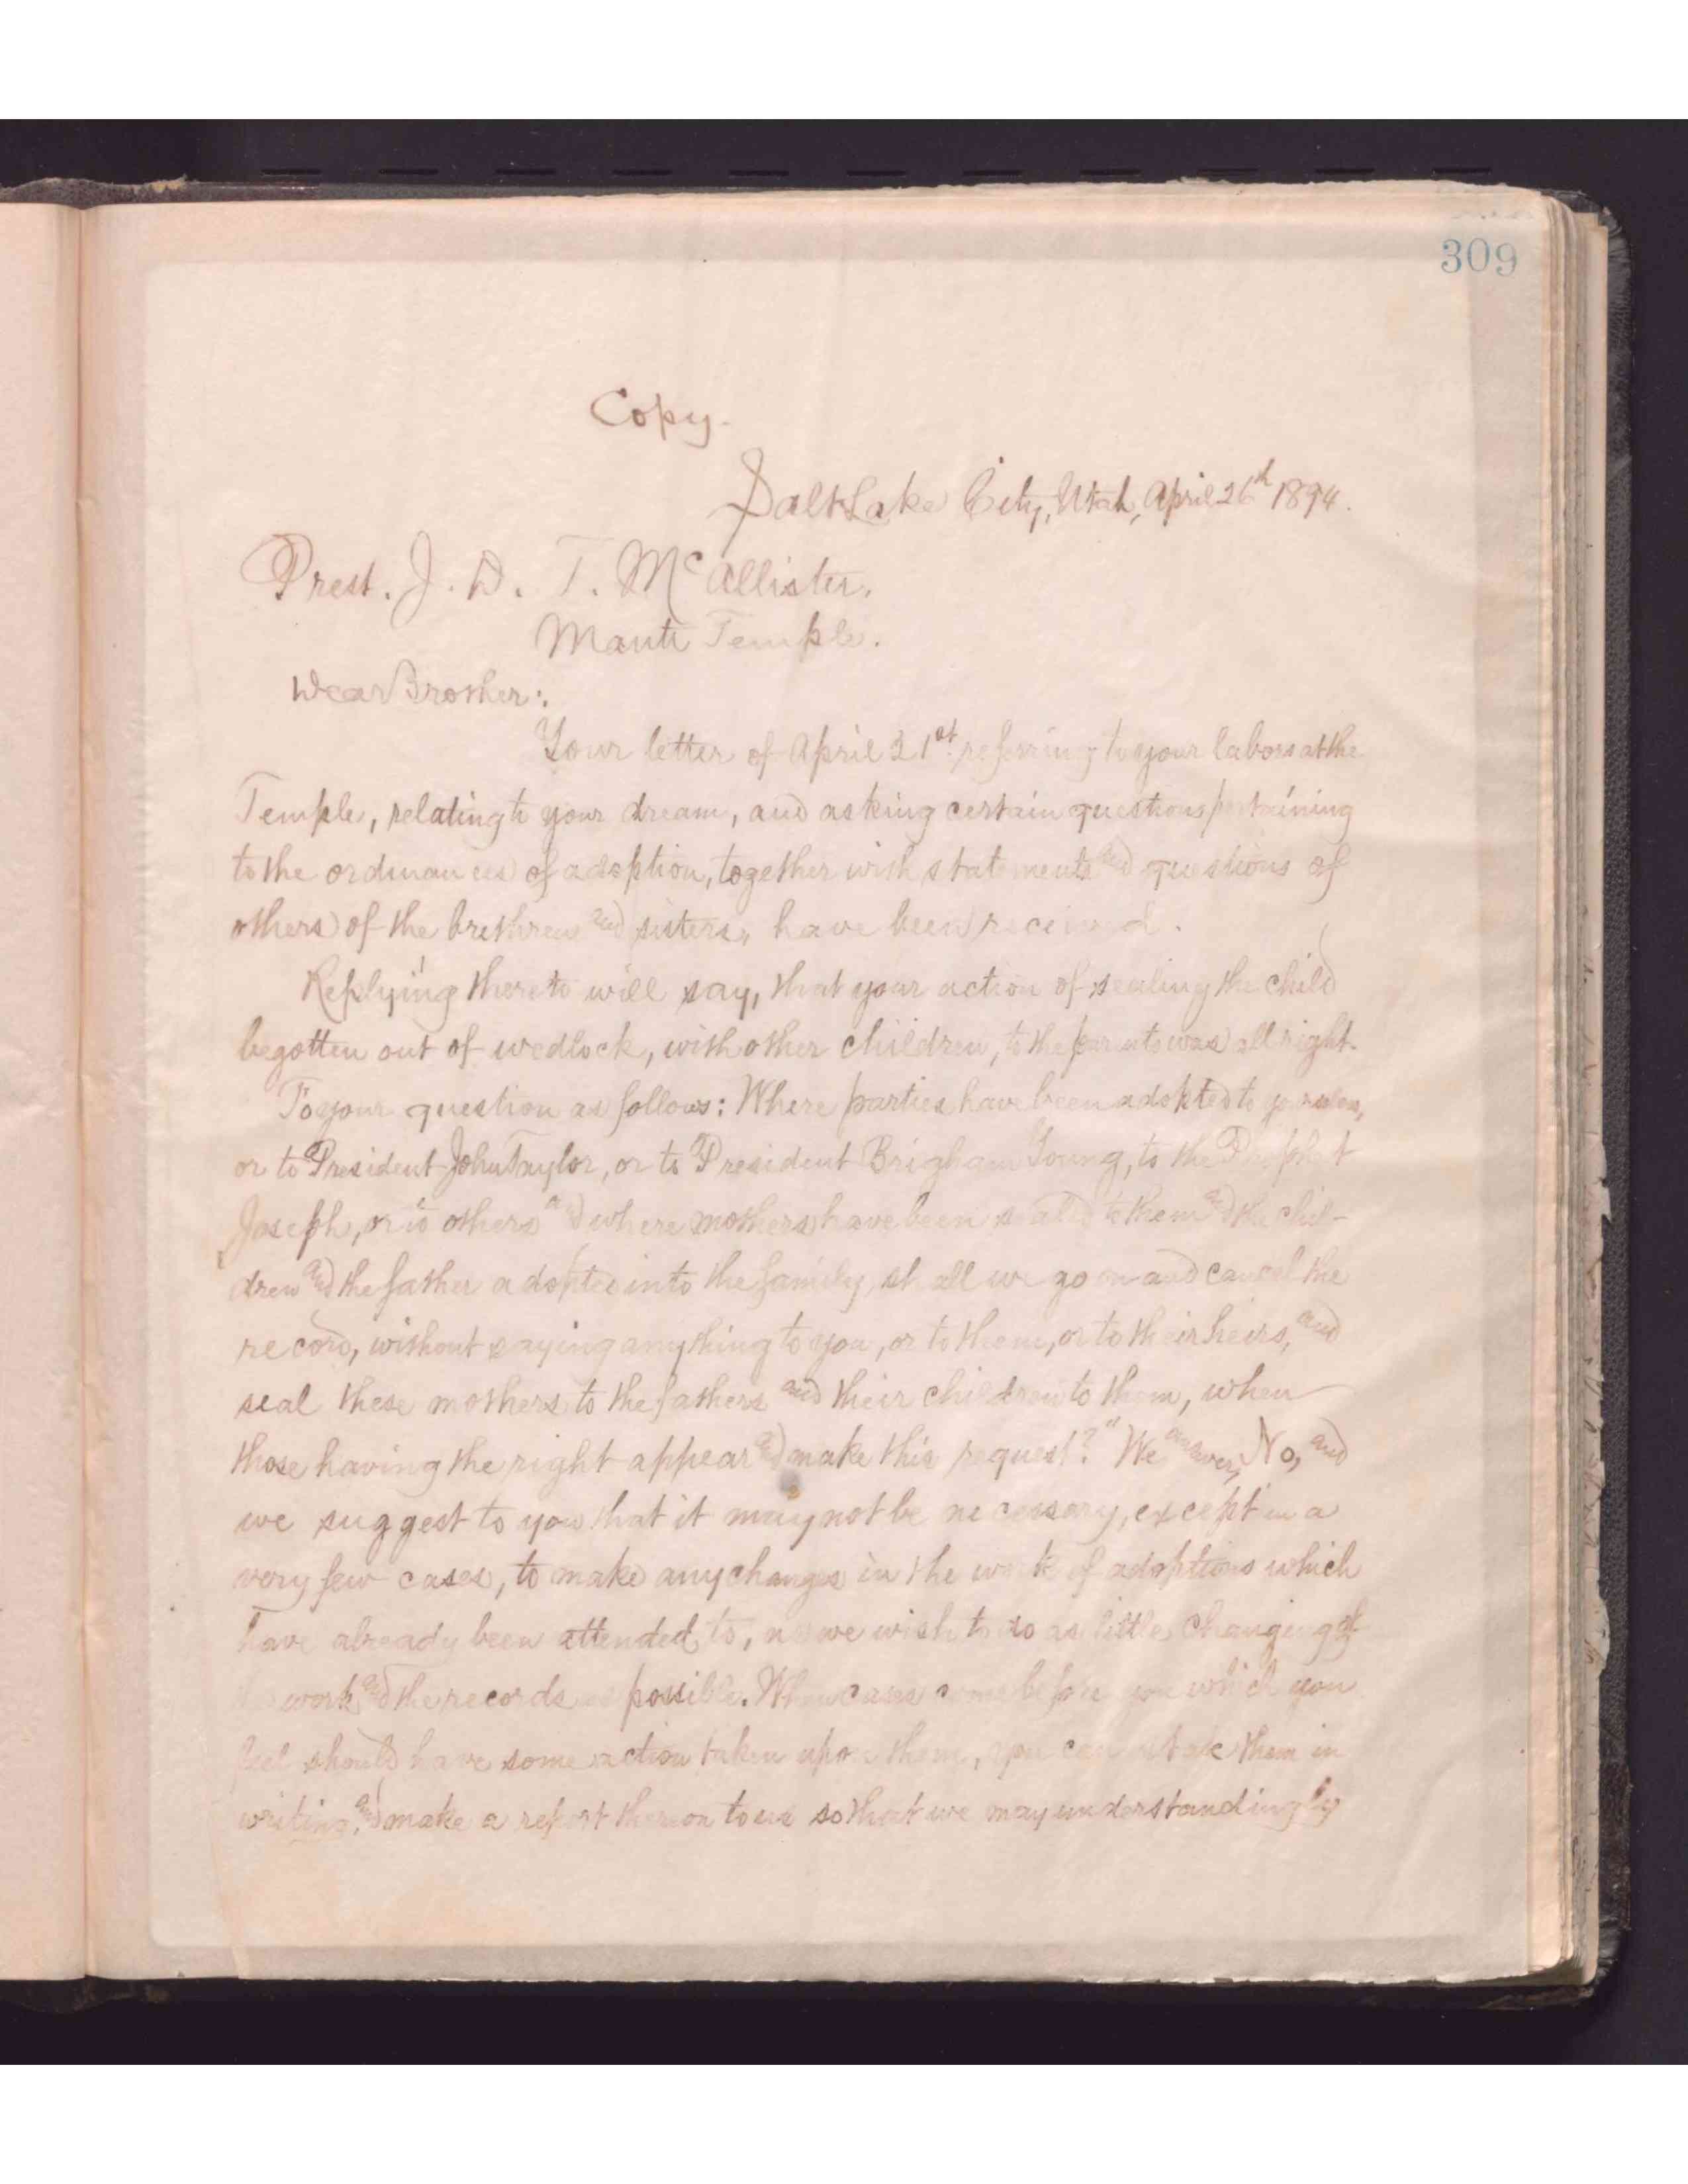 309
Copy.
Salt Lake City, Utah, April 26th 1894.
Prest. J. D. T. McAllister,
Manti Temple.
Dear Brother:
Your letter of April 21st referring to your labors at the
Temple, relating to your dream, and asking certain questions pertaining
to the ordinances of adoption, together with statements and questions of
others of the brethren and sisters, have been received.
Replying thereto will say, that your action of sealing the child
begotten out of wedlock, with other children, to the parents was all right.
To your question as follows: Where parties have been adopted to yourselves,
or to President John Taylor, or to President Brigham Young, to the Prophet
Joseph, or to others and where mothers have been sealed to them and the chil-
dren and the father adopted into the family, shall we go on and cancel the
record, without saying anything to you, or to them, or to their heirs, and
seal these mothers to the fathers and their children to them, when
those having the right appear and make this request?" We answer, No, and
we suggest to you that it may not be necessary, except in a
very few cases, to make any changes in the work of adoptions which
have already been attended to, as we wish to do as little changing of
the work and the records as possible. When cases come before you which you
feel should have some action taken upon them, you can state them in
writing, and make a report thereon to us so that we may understandingly